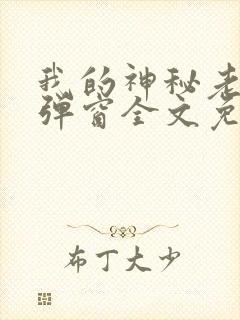 我的神秘老
弹窗全文免
布丁大少